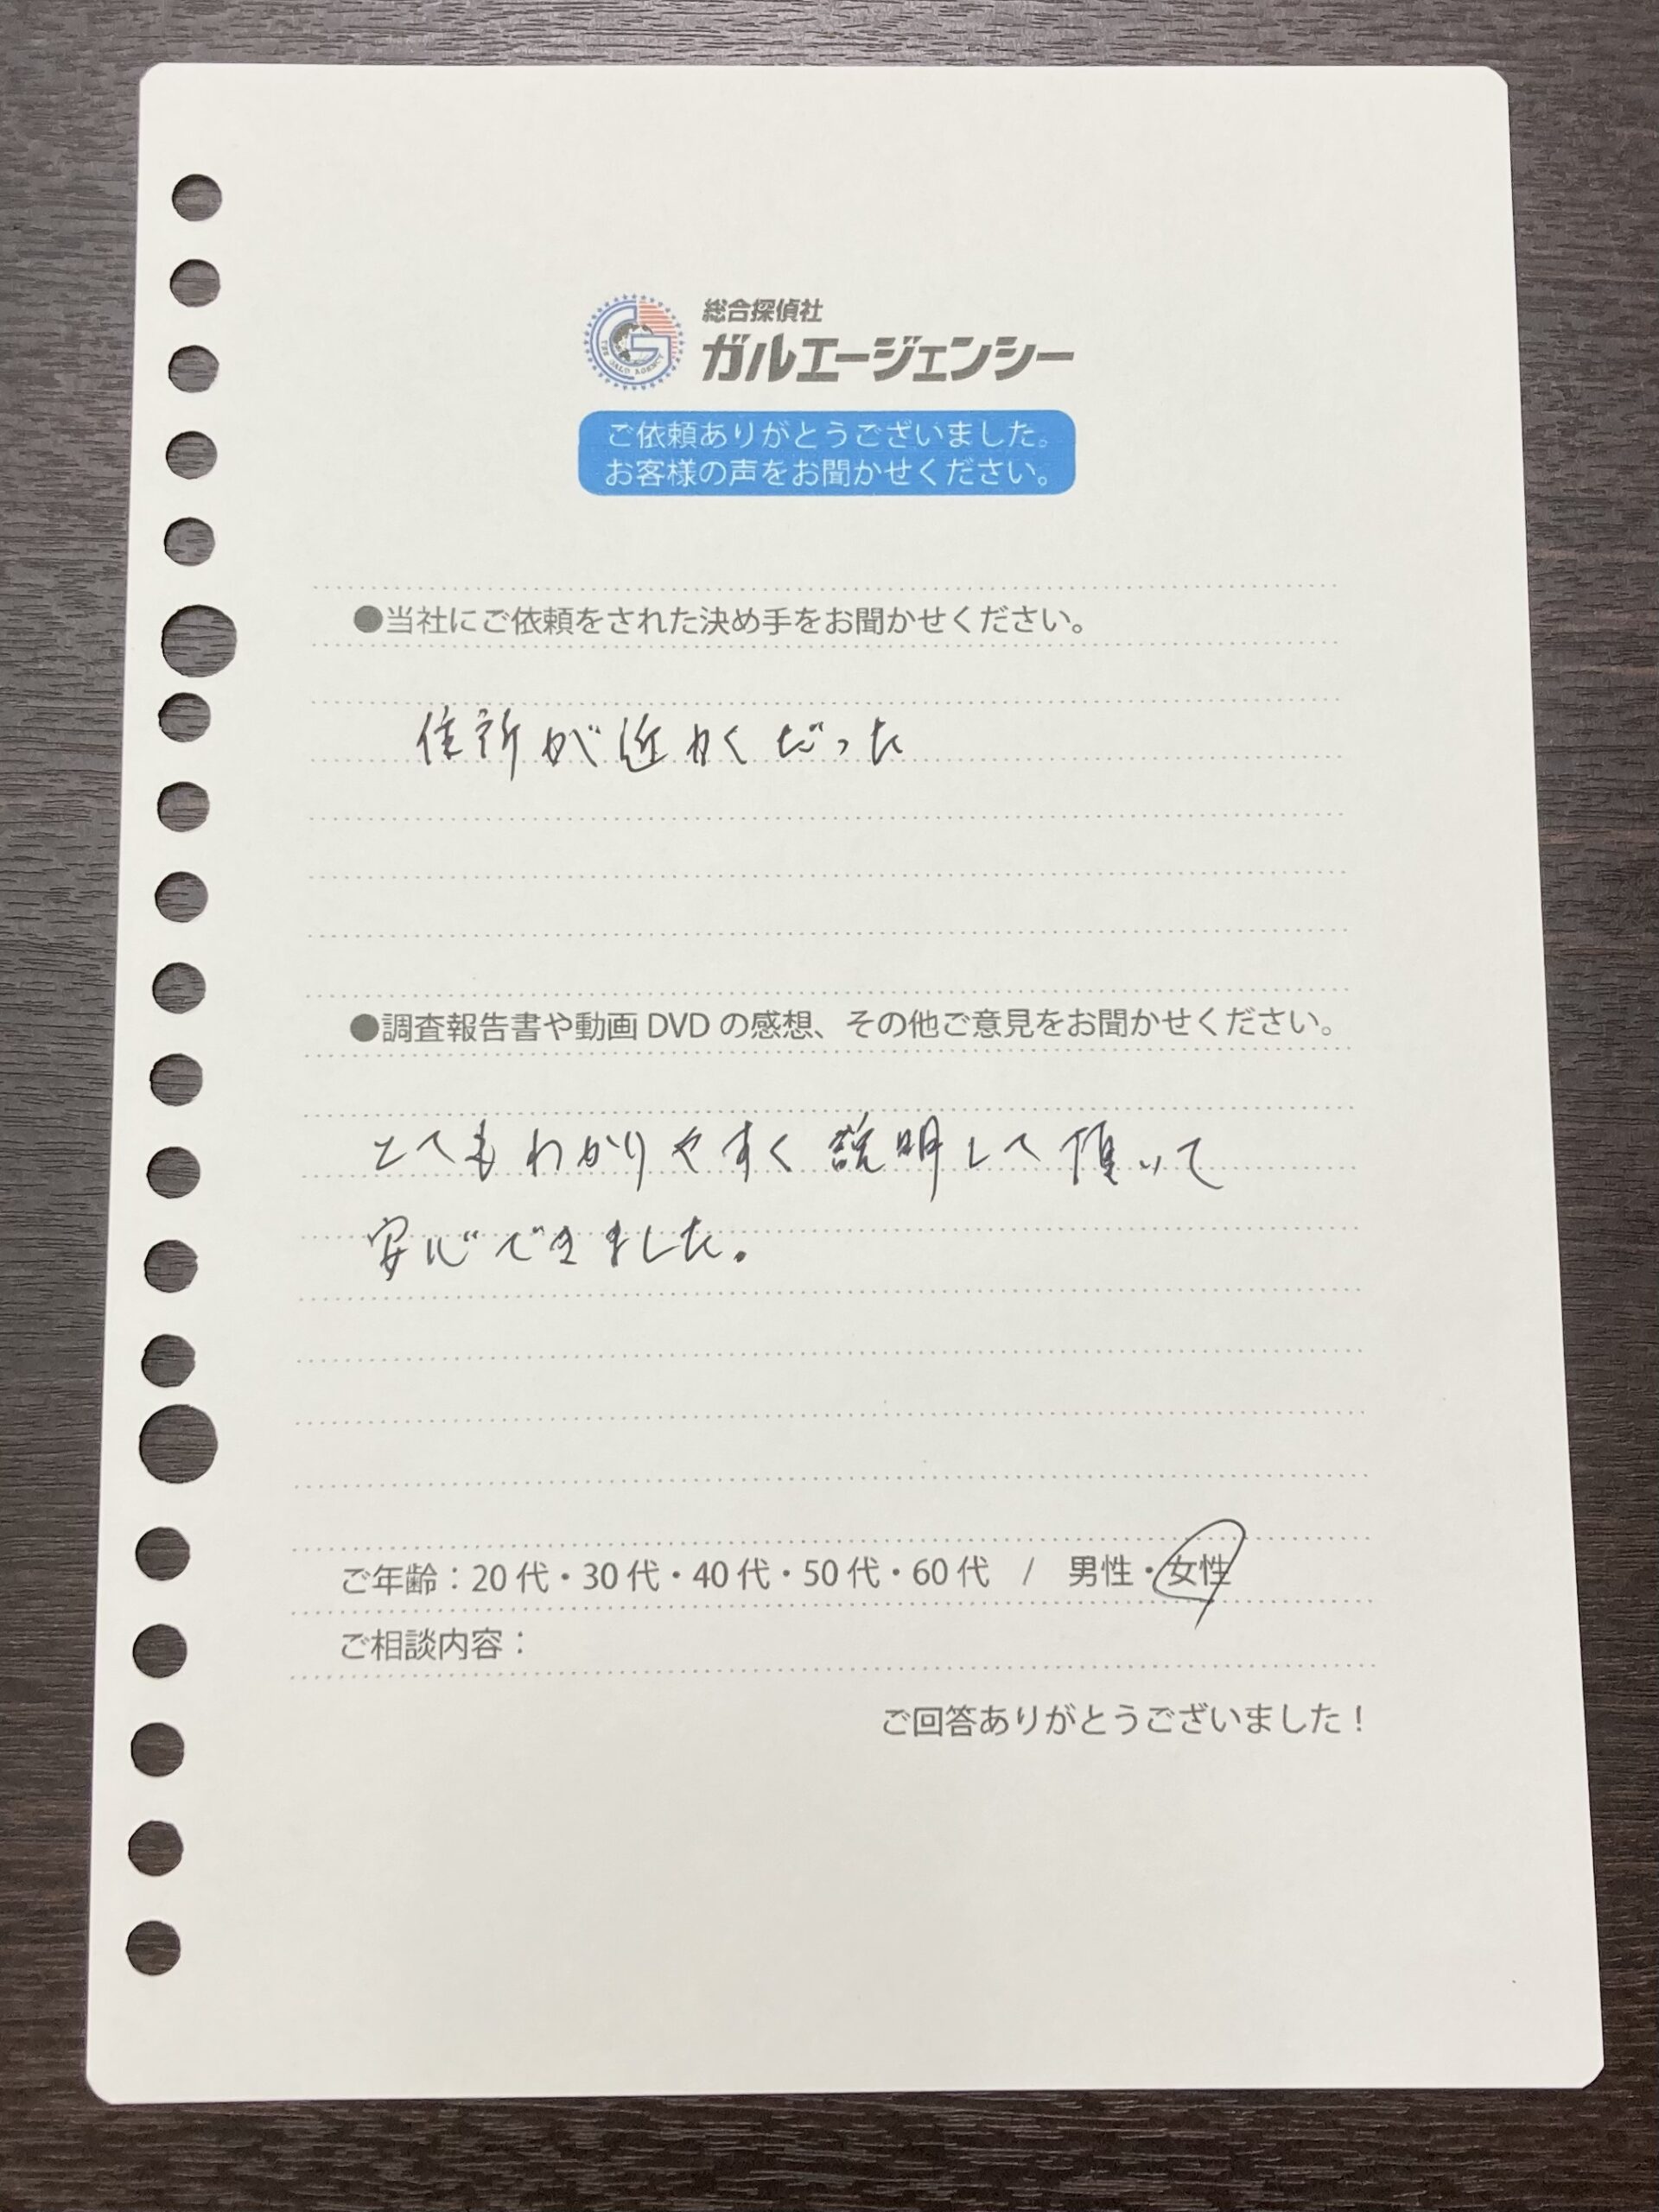 総合探偵社
ガルエージェンシー
THE GALU AGENCY
ご依頼ありがとうございました。
お客様の声をお聞かせください。
●当社にご依頼をされた決め手をお聞かせください。
住所が近かくだった
●調査報告書や動画 DVD の感想、その他ご意見をお聞かせください。
とてもわかりやすく説明して頂いて
安心できました。
ご年齢：20 代・30 代・40 代・50 代・60 代 / 男性・女性
ご相談内容：
ご回答ありがとうございました！